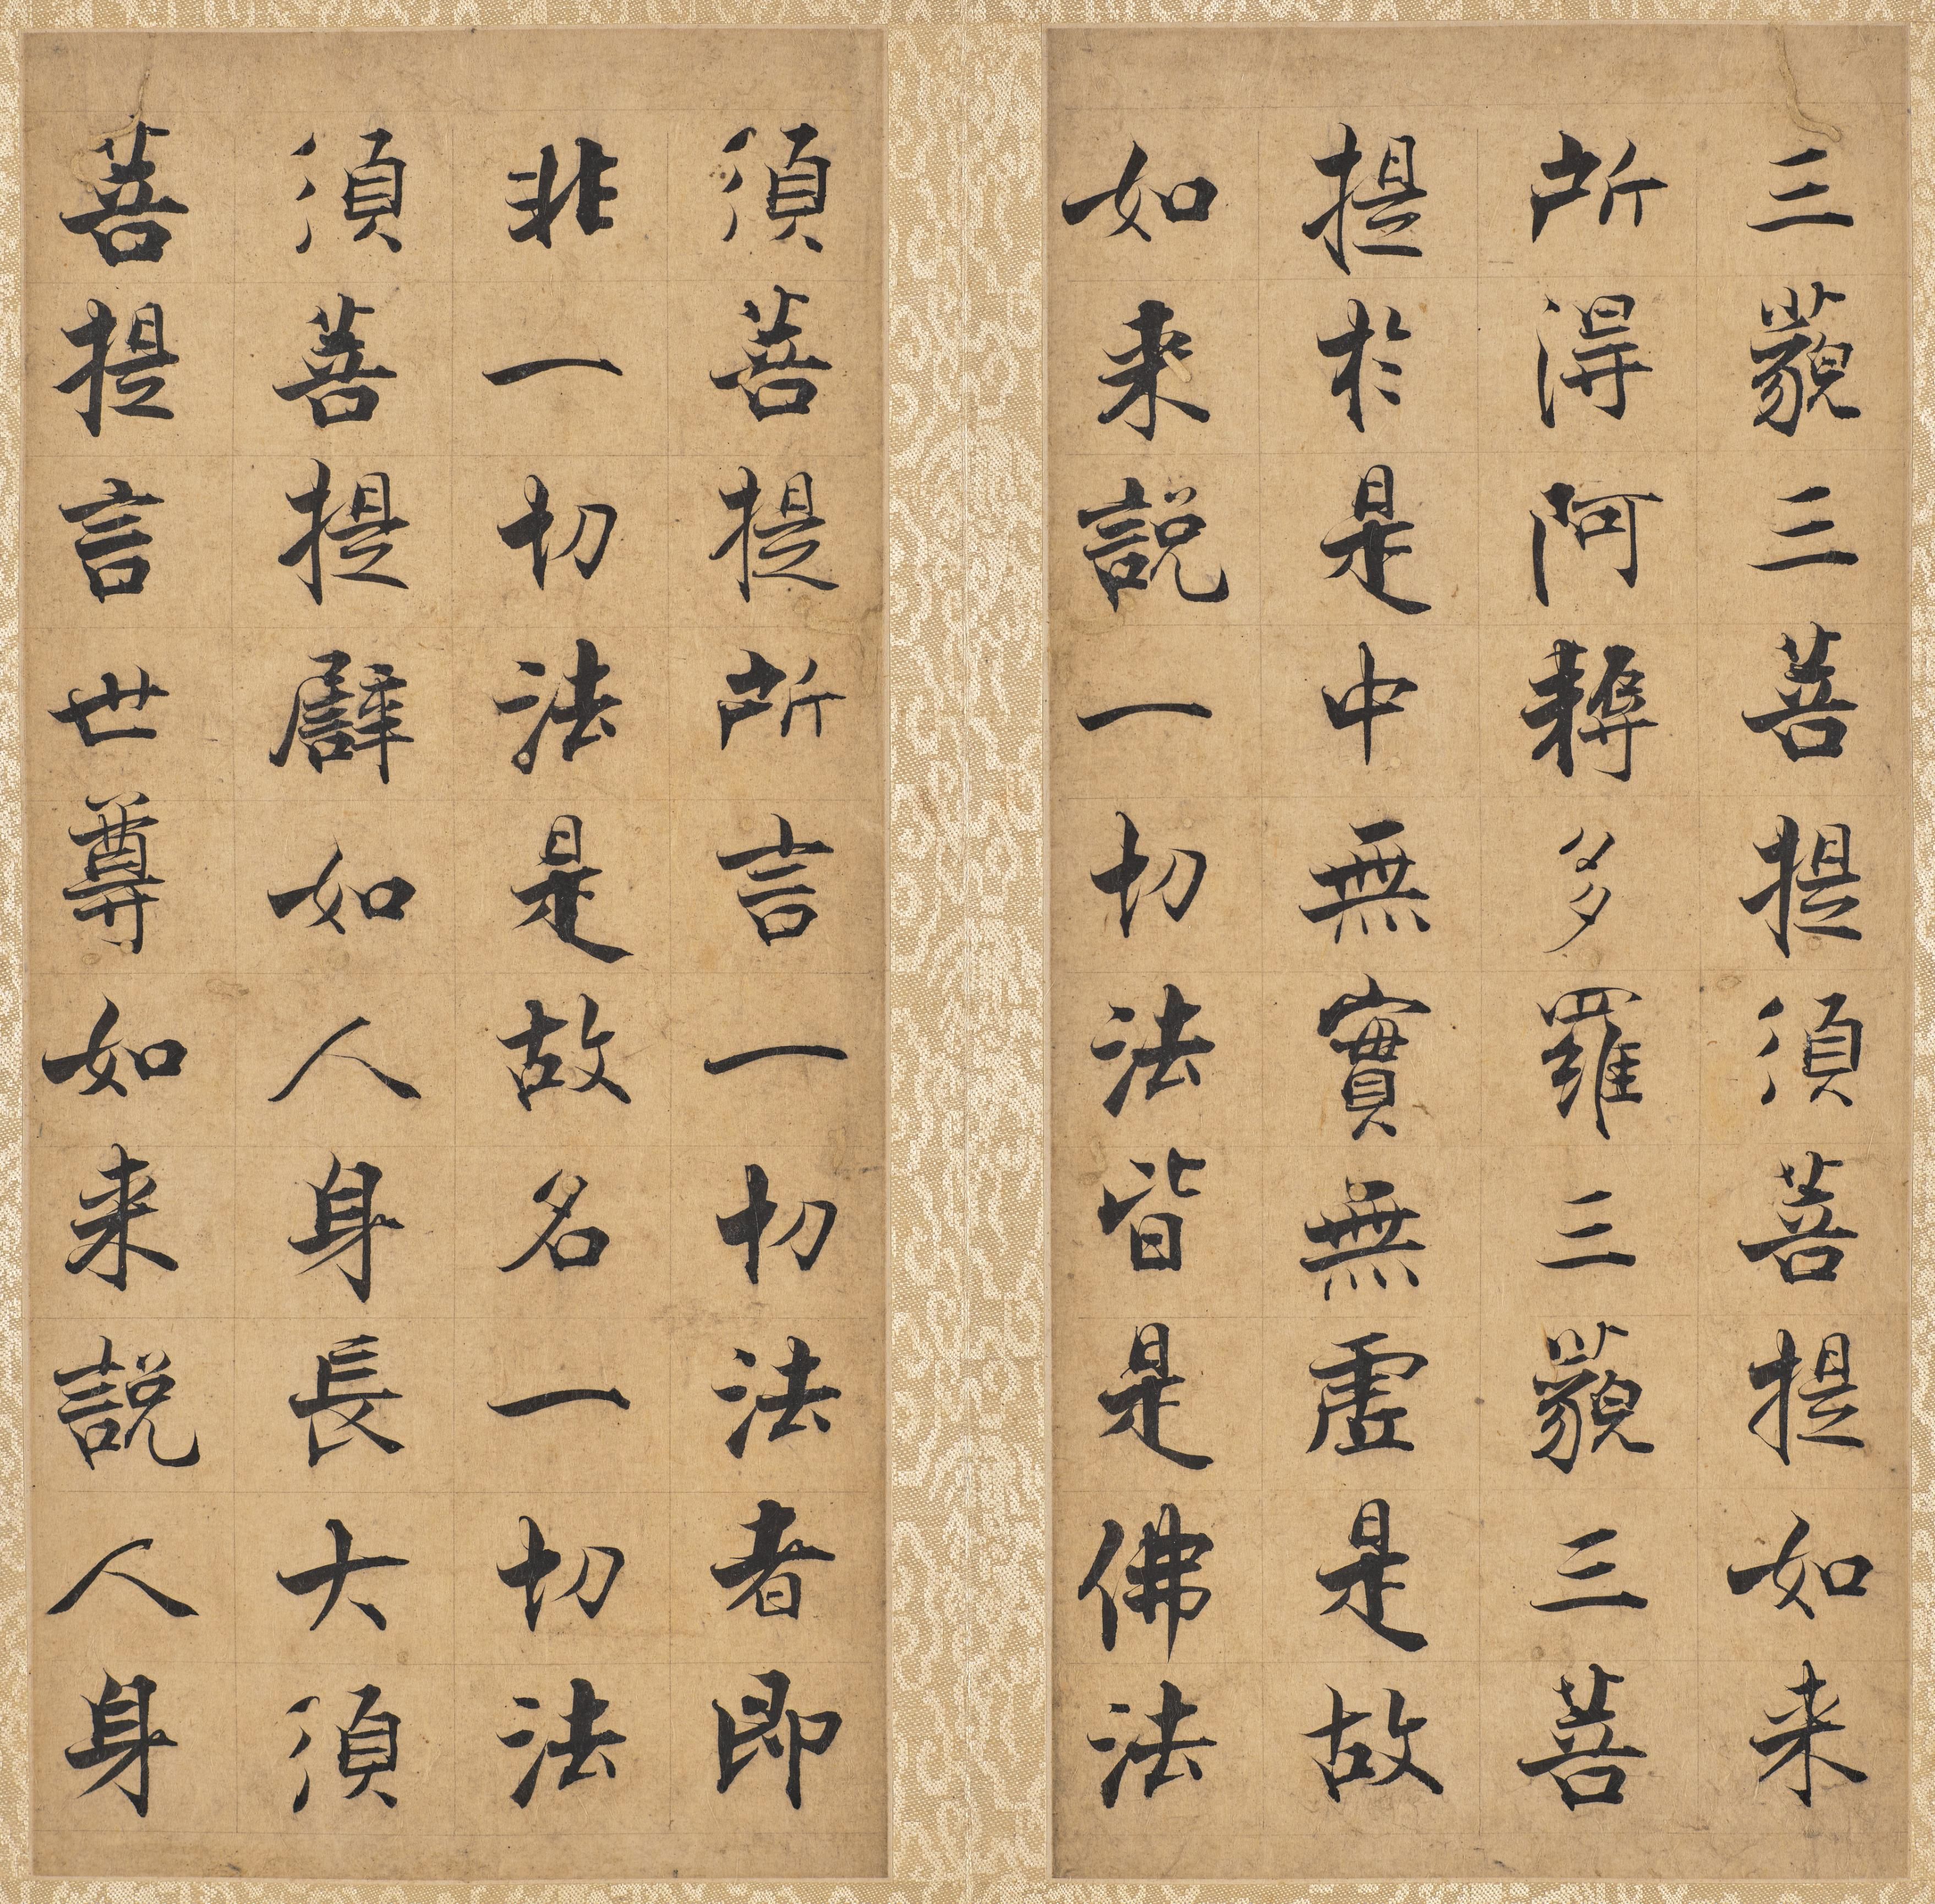 三藐三菩提須菩提如来
所得阿耨多羅三藐三菩
提於是中無實無虛是故
如来說一切法皆是佛法
須菩提所言一切法者即
非一切法是故名一切法
須菩提譬如人身長大須
菩提言世尊如来說人身